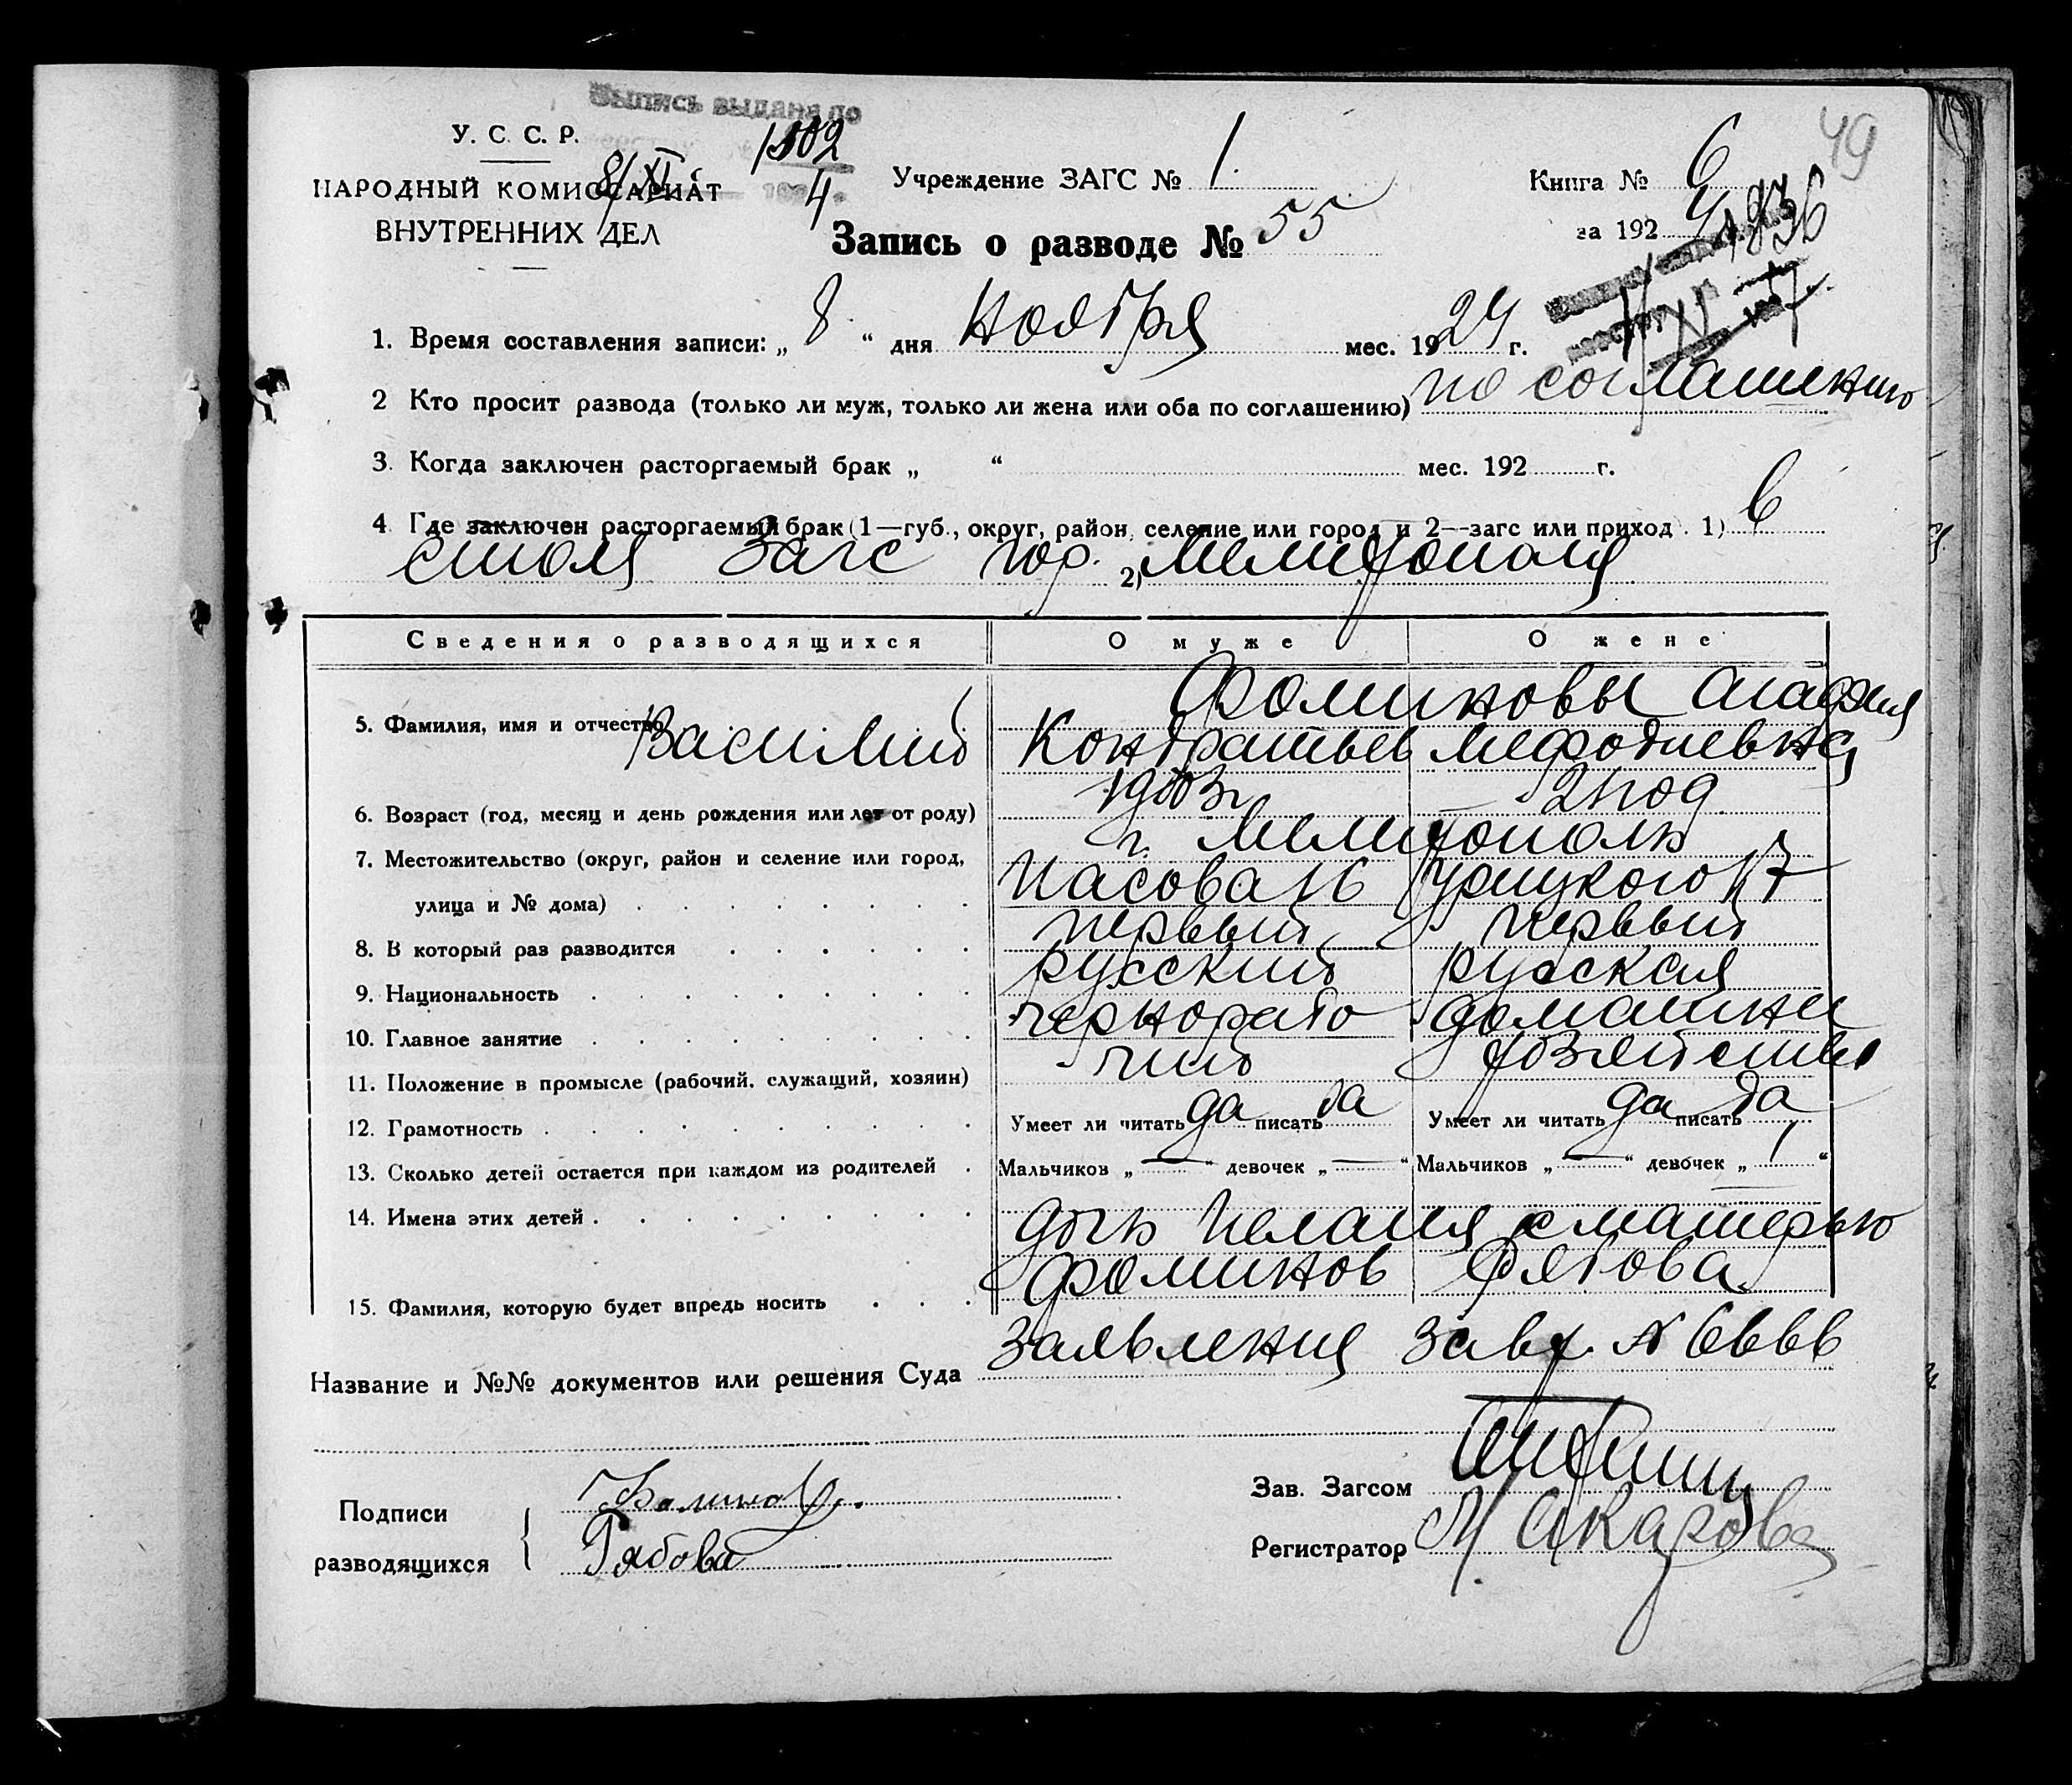 49
Выпись выдана по
У. С. С. Р.
1302
4
8/XI
НАРОДНЫЙ КОМИССАРИАТ
ВНУТРЕННИХ ДЕЛ
Учреждение ЗАГС № 1.
Книга № 6
за 192 4
1836
Запись о разводе № 55
1. Время составления записи: „ 8 “ дня Ноября мес. 1924 г.
2 Кто просит развода (только ли муж, только ли жена или оба по соглашению) по соглашению
3. Когда заключен расторгаемый брак „ “ мес. 192 г.
4. Где заключен расторгаемый брак (1—губ., округ, район, селение или город и 2—загс или приход). 1) в
столя Загс гор. 2) Мелитополя
Сведения о разводящихся О муже О жене
Фоминовы Агафия
5. Фамилия, имя и отчество Василий Кондратьев Мефодиевна
6. Возраст (год, месяц и день рождения или лет от роду) 1903 г. 21 год
7. Местожительство (округ, район и селение или город, г. Мелитополь
улица и № дома) Часовая 16 Урицкого 17
8. В который раз разводится первый первый
9. Национальность русский русская
10. Главное занятие чернорабо домашнее
11. Положение в промысле (рабочий, служащий, хозяин) чий хозяйство
12. Грамотность Умеет ли читать да писать да Умеет ли читать да писать да
13. Сколько детей остается при каждом из родителей Мальчиков „ — “ девочек „ — “ Мальчиков „ — “ девочек „ 1 “
14. Имена этих детей дочь Пелагия с матерью
15. Фамилия, которую будет впредь носить Фоминов Рябова
Название и №№ документов или решения Суда Заявления за вх. № 6666
Зав. Загсом
Подписи Фоминов
разводящихся Рябова
Регистратор Макарова